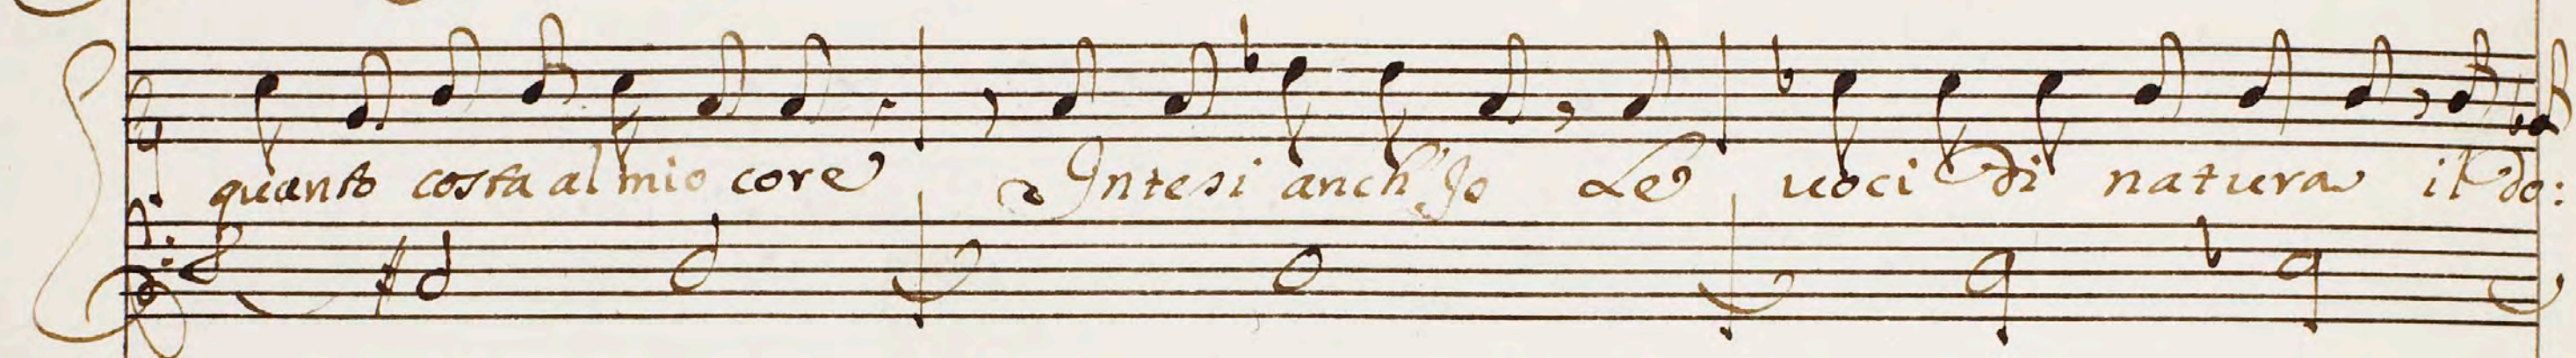 quanto costa al mio core Intesi anch'Io Le uoci di natura il do: